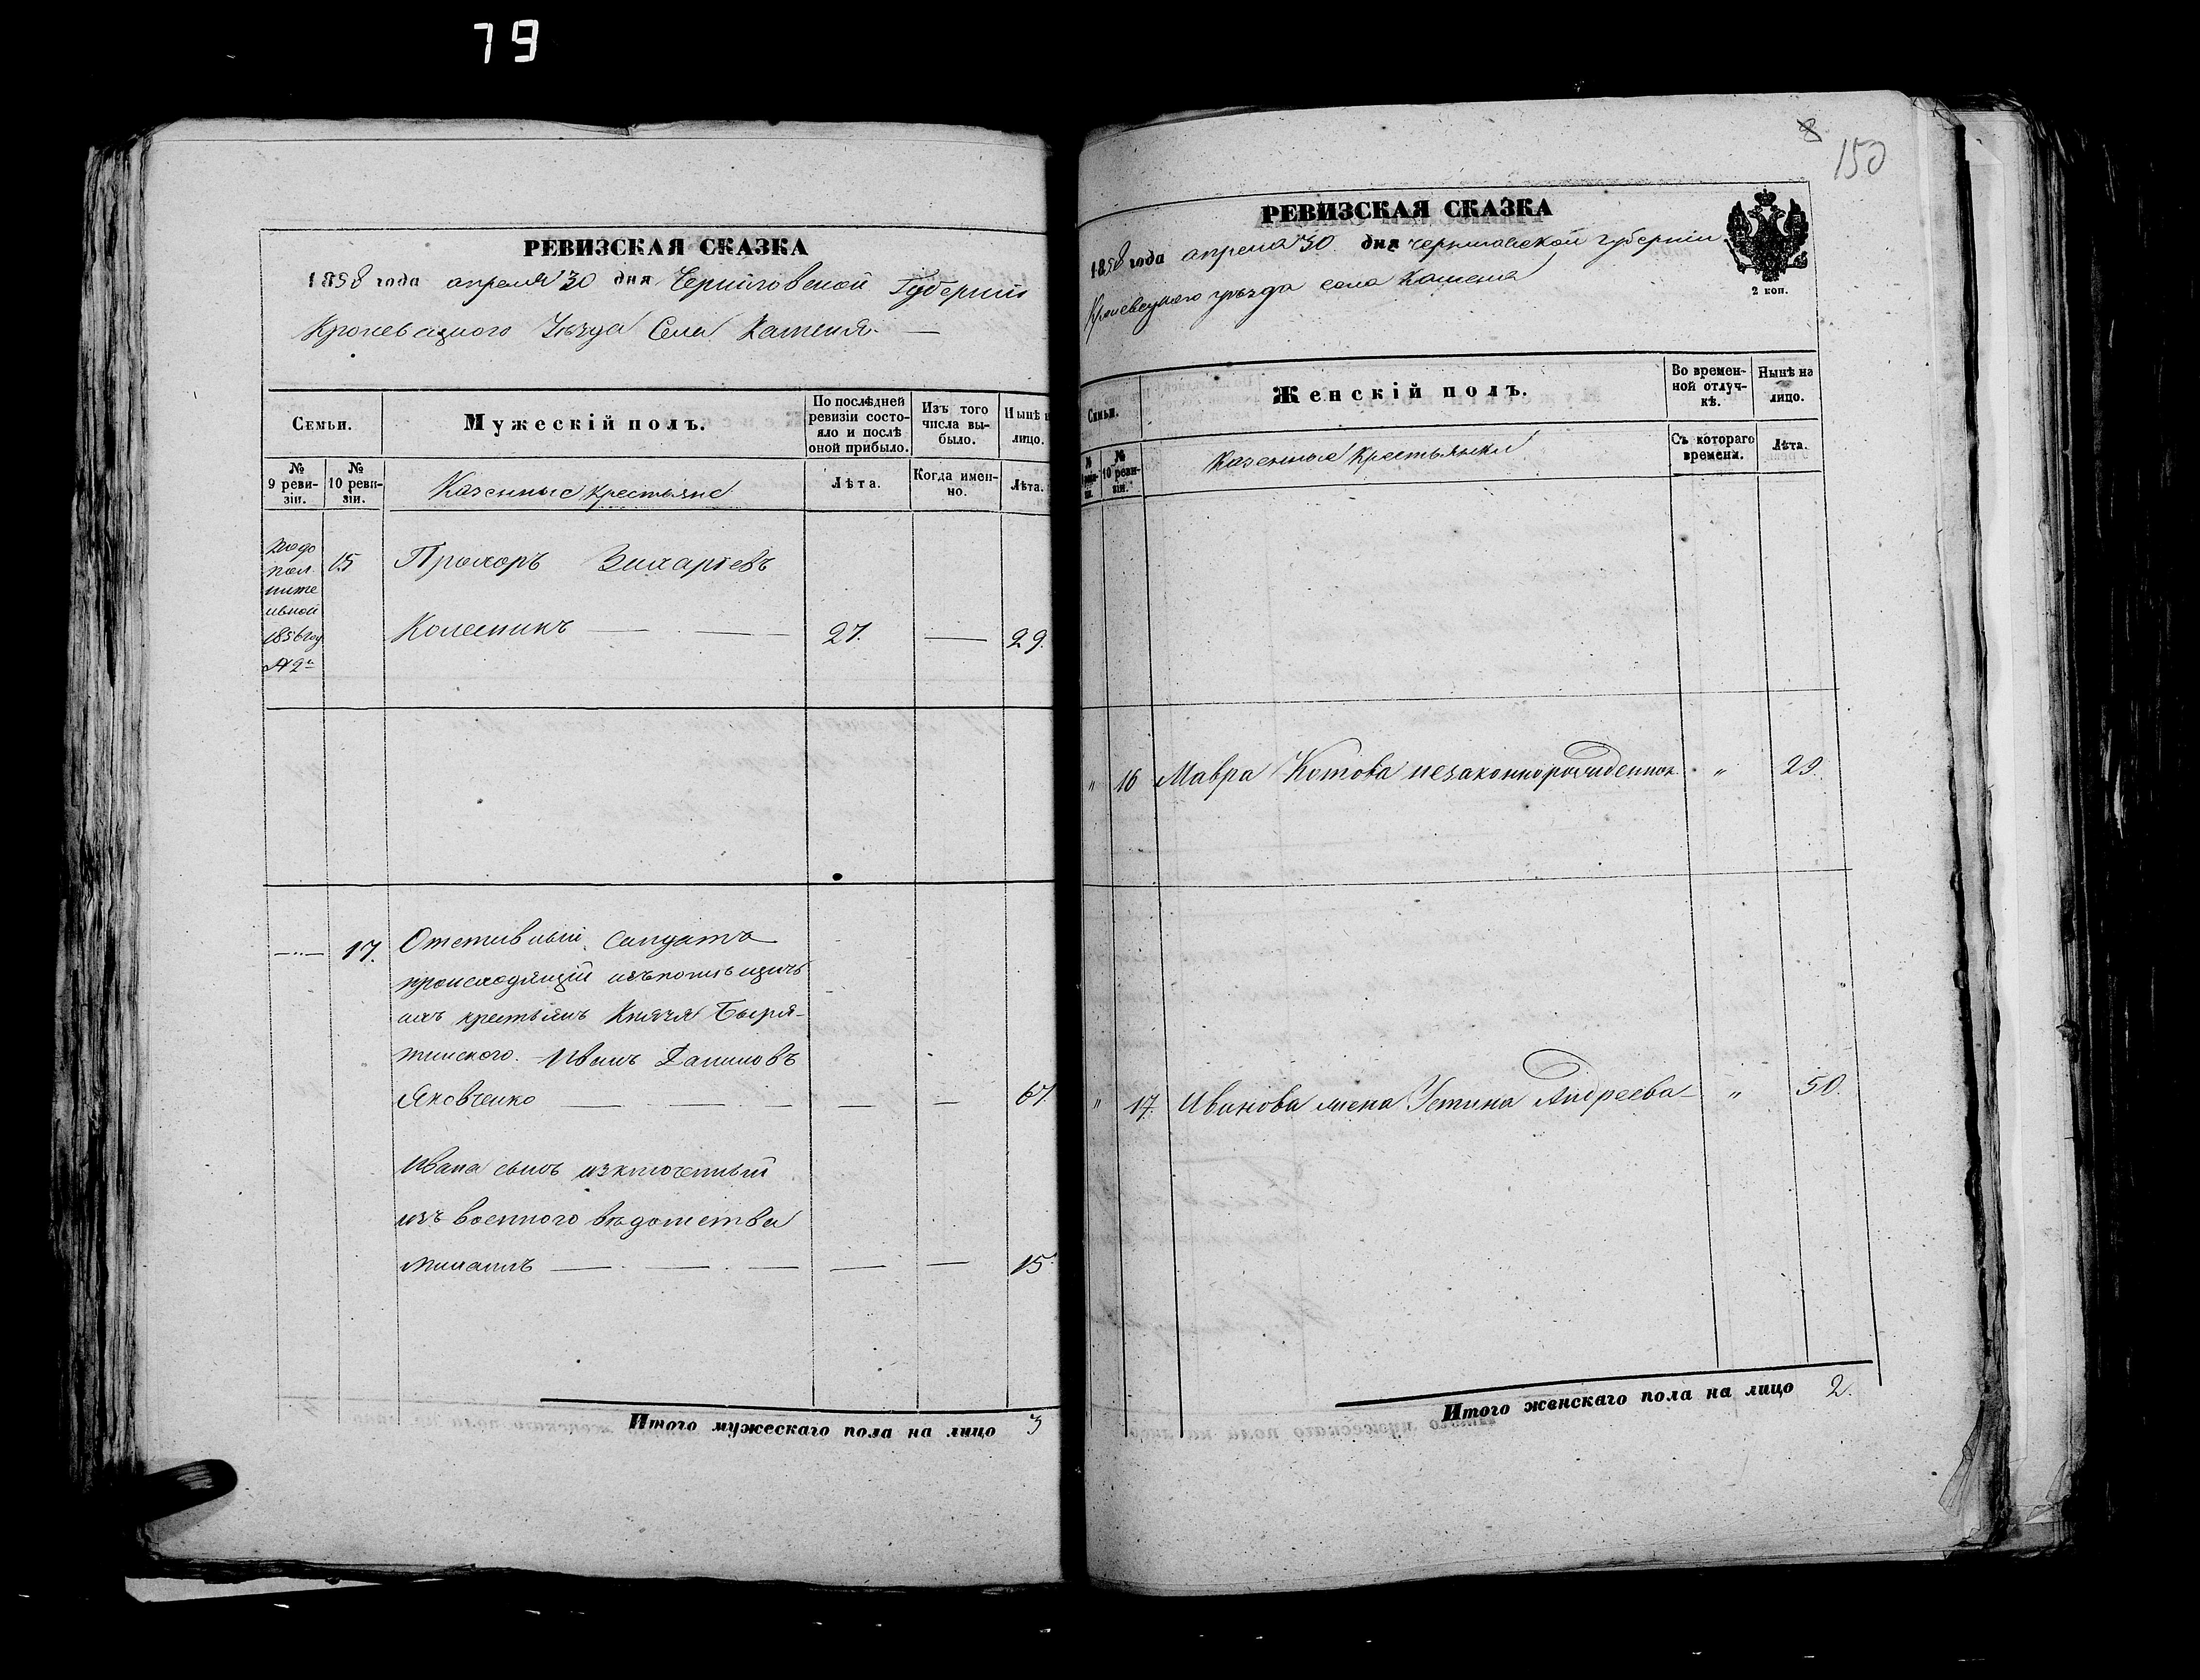 79
РЕВИЗСКАЯ СКАЗКА
1858 года апреля 30 дня Черниговской Губерніи
Кролевецкого Уѣзда Села Каменя
Семьи.
Мужескій полъ.
По послѣдней ревизіи состояло и послѣ оной прибыло.
Изъ того числа выбыло.
Нынѣ н
лицо.
№ 9 ревизіи.
№ 10 ревизіи.
Казенные крестьяне
Лѣта.
Когда именно.
Лѣта.
По до
пол
ните
льной
1856 году
№ 2
15
Прохоръ Захаріевъ
Колесникъ
27.
29.
17.
Отставный солдатъ
происходящій изъ помѣщичь
ихъ крестьянъ Князя Баря-
тинского. Иванъ Даниловъ
Яковченко
67.
Ивана сынъ изключенный
изъ военного вѣдомства
Михаилъ
15
Итого мужескаго пола на лицо 3
8
150
РЕВИЗСКАЯ СКАЗКА
1858 года апреля 30 дня черниговской губерніи
Кролевецкого уѣзда села Каменя
2 коп.
Семьи.
Женскій полъ.
Во временной отлучкѣ.
Нынѣ на лицо.
№
10 ревизіи.
Казенные крестьянки
Съ котораго времени.
Лѣта.
" 16 Мавра Котова незаконнорожденная " 29.
" 17. Иванова жена Устина Андреева " 50.
Итого женскаго пола на лицо 2.